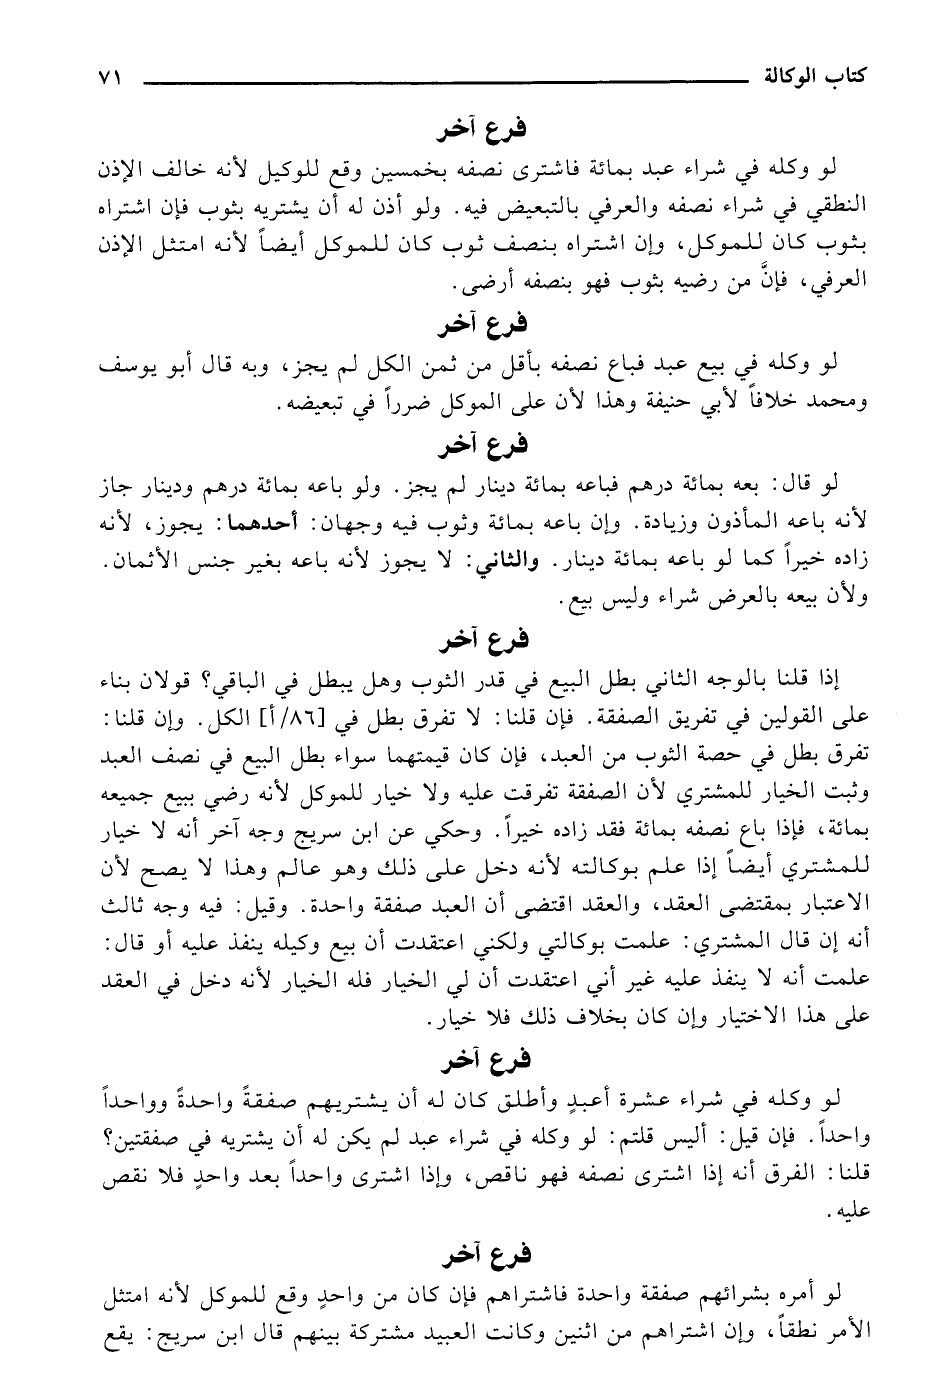 كتاب الوكالة ٧١
فرع آخر
لو وكله في شراء عبد بمائة فاشترى نصفه بخمسين وقع للوكيل لأنه خالف الإذن
النطقي في شراء نصفه والعرفي بالتبعيض فيه. ولو أذن له أن يشتريه بثوب فإن اشتراه
بثوب كان للموكل، وإن اشتراه بنصف ثوب كان للموكل أيضاً لأنه امتثل الإذن
العرفي، فإنَّ من رضيه بثوب فهو بنصفه أرضى.
فرع آخر
لو وكله في بيع عبد فباع نصفه بأقل من ثمن الكل لم يجز، وبه قال أبو يوسف
ومحمد خلافاً لأبي حنيفة وهذا لأن على الموكل ضرراً في تبعيضه.
فرع آخر
لو قال: بعه بمائة درهم فباعه بمائة دينار لم يجز. ولو باعه بمائة درهم ودينار جاز
لأنه باعه المأذون وزيادة. وإن باعه بمائة وثوب فيه وجهان: أحدهما: يجوز، لأنه
زاده خيراً كما لو باعه بمائة دينار. والثاني: لا يجوز لأنه باعه بغير جنس الأثمان.
ولأن بيعه بالعرض شراء وليس بيع.
فرع آخر
إذا قلنا بالوجه الثاني بطل البيع في قدر الثوب وهل يبطل في الباقي؟ قولان بناء
على القولين في تفريق الصفقة. فإن قلنا: لا تفرق بطل في [٨٦/أ] الكل. وإن قلنا:
تفرق بطل في حصة الثوب من العبد، فإن كان قيمتهما سواء بطل البيع في نصف العبد
وثبت الخيار للمشتري لأن الصفقة تفرقت عليه ولا خيار للموكل لأنه رضي ببيع جميعه
بمائة، فإذا باع نصفه بمائة فقد زاده خيراً. وحكي عن ابن سريج وجه آخر أنه لا خيار
للمشتري أيضاً إذا علم بوكالته لأنه دخل على ذلك وهو عالم وهذا لا يصح لأن
الاعتبار بمقتضى العقد، والعقد اقتضى أن العبد صفقة واحدة. وقيل: فيه وجه ثالث
أنه إن قال المشتري: علمت بوكالتي ولكني اعتقدت أن بيع وكيله ينفذ عليه أو قال:
علمت أنه لا ينفذ عليه غير أني اعتقدت أن لي الخيار فله الخيار لأنه دخل في العقد
على هذا الاختيار وإن كان بخلاف ذلك فلا خيار.
فرع آخر
لو وكله في شراء عشرة أعبدٍ وأطلق كان له أن يشتريهم صفقةً واحدةً وواحداً
واحداً. فإن قيل: أليس قلتم: لو وكله في شراء عبد لم يكن له أن يشتريه في صفقتين؟
قلنا: الفرق أنه إذا اشترى نصفه فهو ناقص، وإذا اشترى واحداً بعد واحدٍ فلا نقص
عليه.
فرع آخر
لو أمره بشرائهم صفقة واحدة فاشتراهم فإن كان من واحدٍ وقع للموكل لأنه امتثل
الأمر نطقاً، وإن اشتراهم من اثنين وكانت العبيد مشتركة بينهم قال ابن سريج: يقع